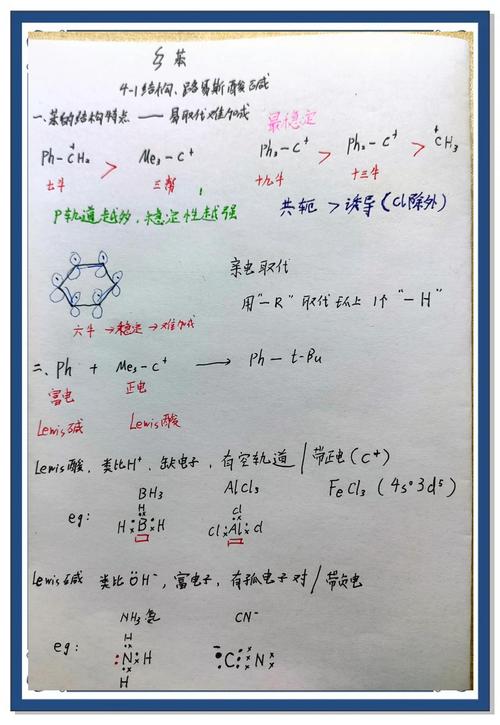 苯
4-1 结构、路易斯酸碱
一、苯的结构特点 —— 易取代难加成
最稳定
Ph-C⁺H₂ > Me₃-C⁺ Ph₃-C⁺ > Ph₂-C⁺ > C⁺H₃
七斗 三帮 十九斗 十三斗
P轨道越多，稳定性越强 共轭 > 诱导（Cl除外）
亲电取代
用"-R"取代环上1个"-H"
六斗 → 稳定 → 难加成
二、Ph + Me₃-C⁺ ⟶ Ph-t-Bu
富电 正电
Lewis碱 Lewis酸
Lewis酸，类比H⁺，缺电子，有空轨道/带正电(C⁺)
BH₃ AlCl₃ FeCl₃ (4s⁰3d⁵)
eg: H B H H Cl Al Cl Cl
Lewis碱 类比ÖH⁻，富电子，有孤电子对/带负电
NH₃氨 CN⁻
eg: H :N H H C N